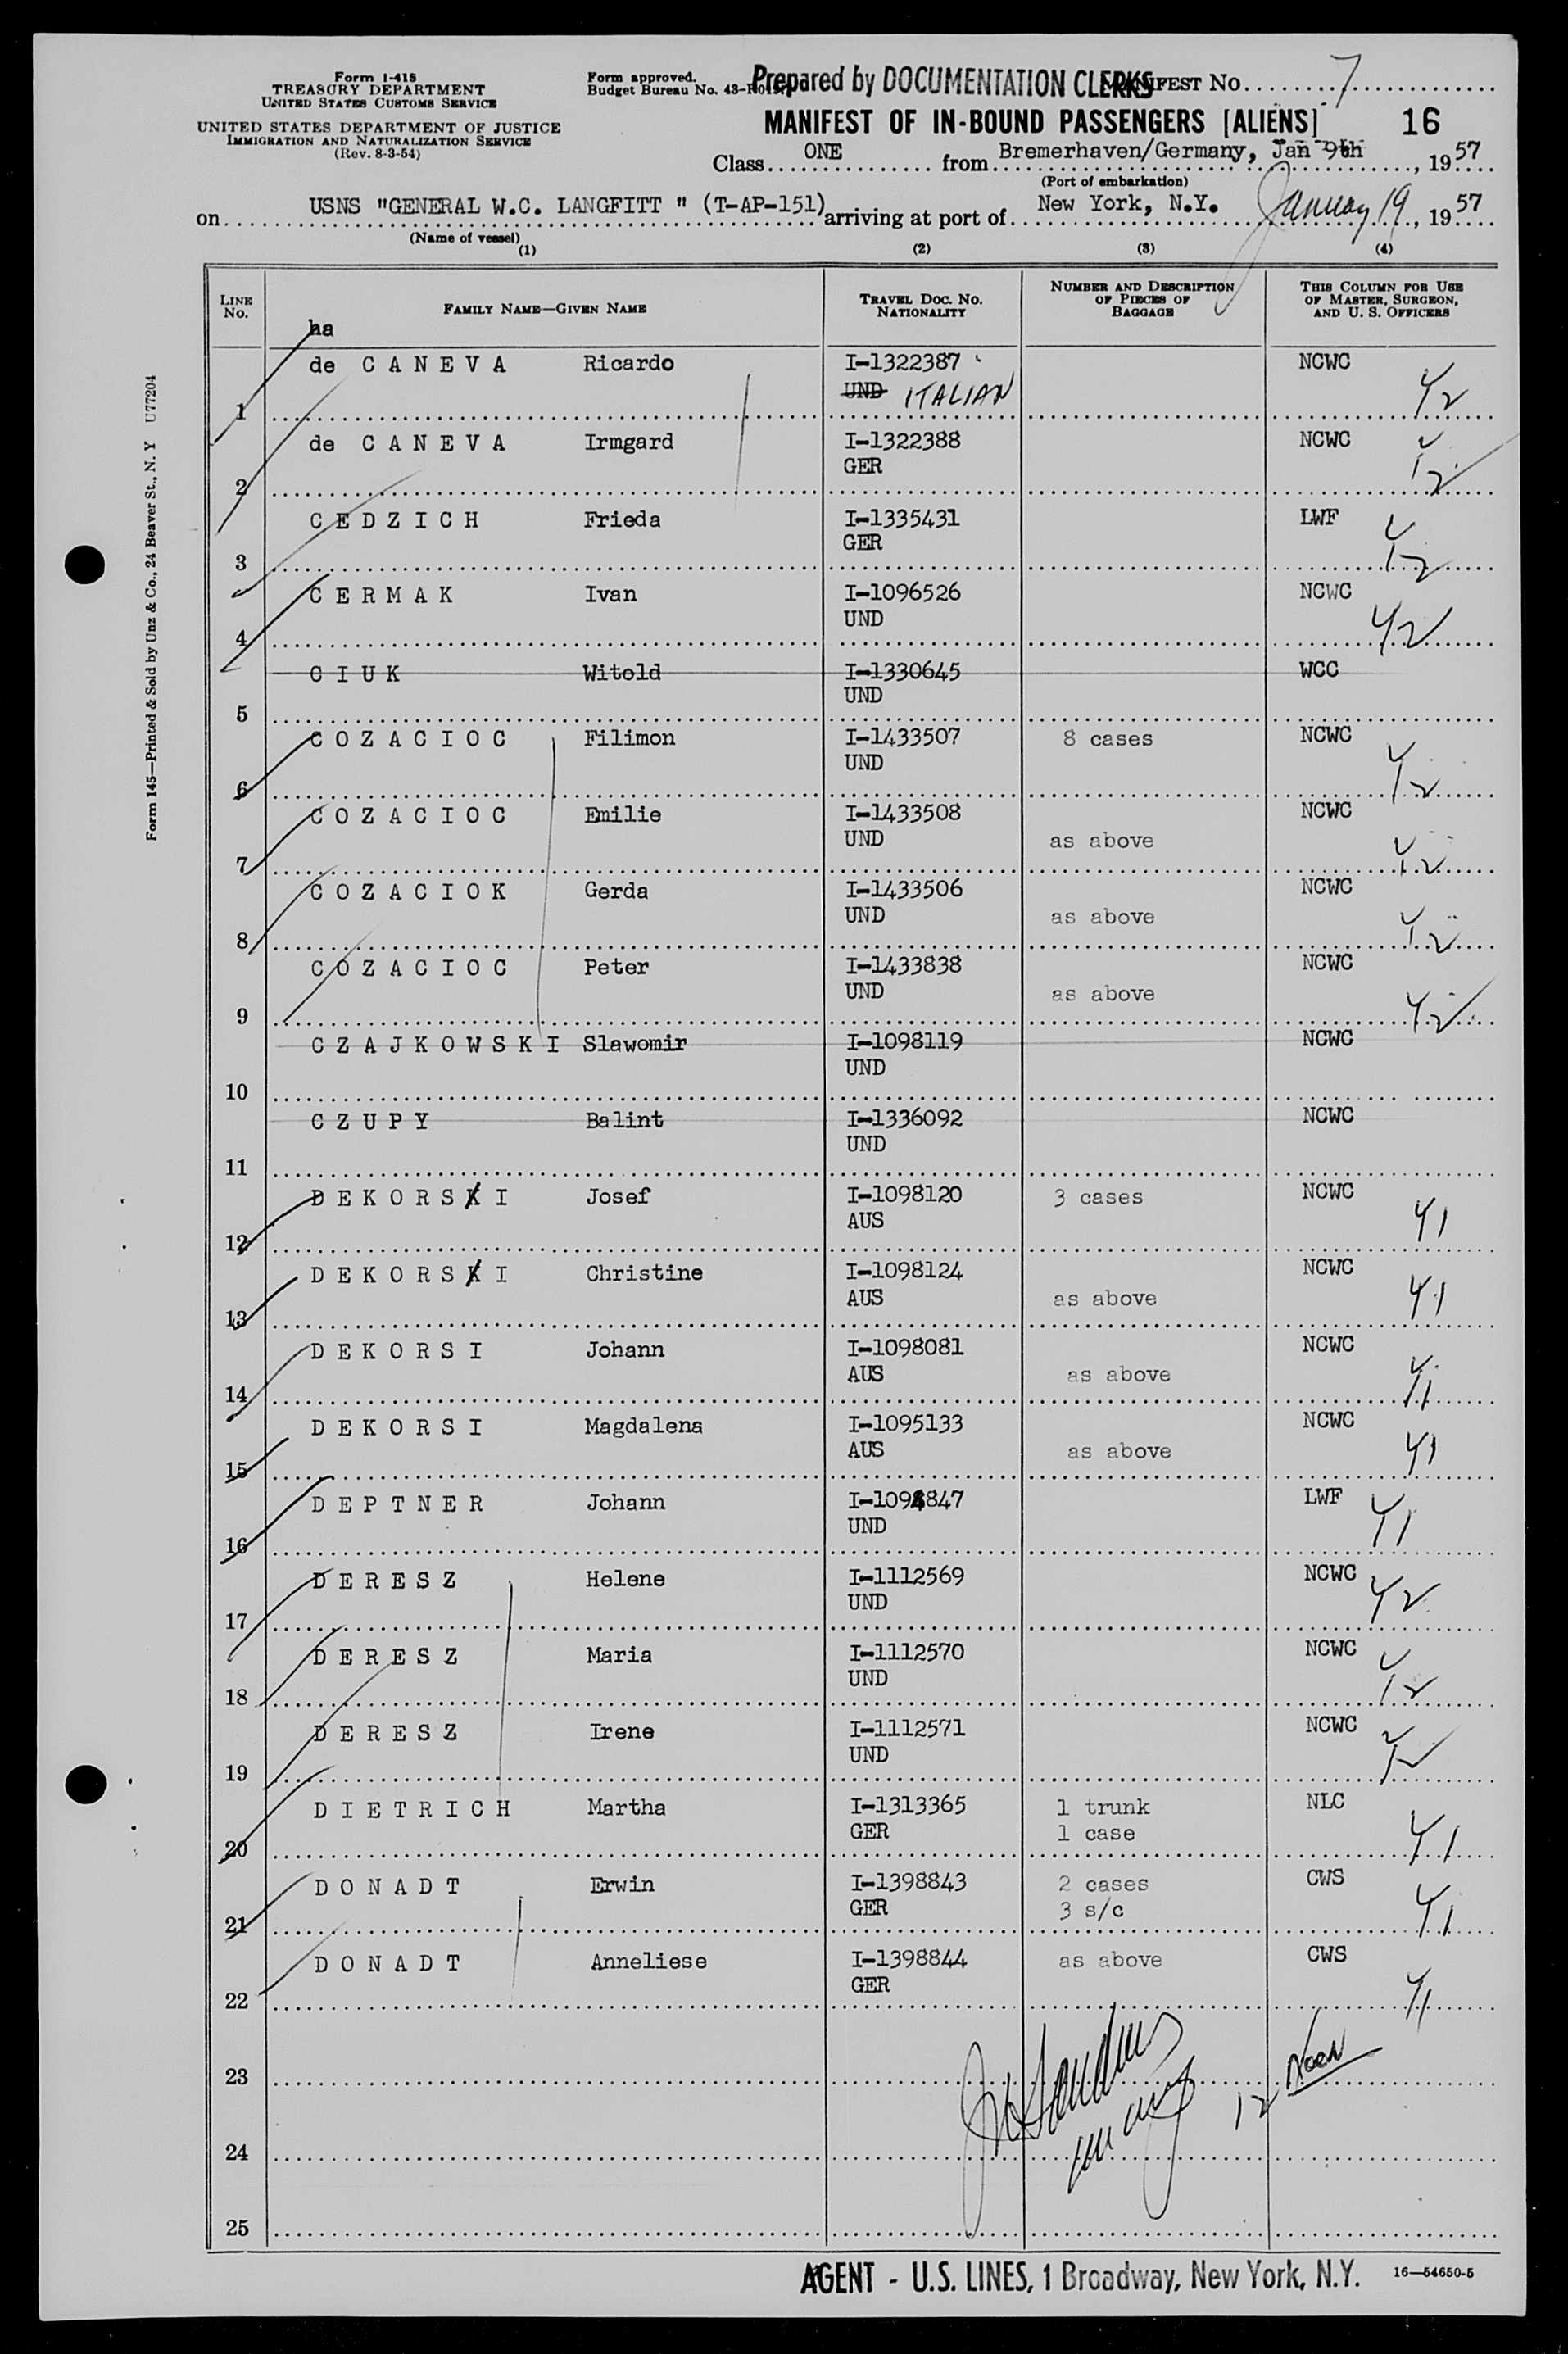 Form I-418
TREASURY DEPARTMENT
UNITED STATES CUSTOMS SERVICE
UNITED STATES DEPARTMENT OF JUSTICE
IMMIGRATION AND NATURALIZATION SERVICE
(Rev. 8-3-54)
Form approved.
Budget Bureau No. 43-
Prepared by DOCUMENTATION CLERKS
MANIFEST No. 7
MANIFEST OF IN-BOUND PASSENGERS [ALIENS] 16
Class ONE from Bremerhaven/Germany, Jan 9th, 1957
(Port of embarkation)
on USNS "GENERAL W.C. LANGFITT " (T-AP-151) arriving at port of New York, N.Y. January 19, 1957
(Name of vessel)
(1) (2) (3) (4)
LINE No. FAMILY NAME—GIVEN NAME TRAVEL DOC. NO. NATIONALITY NUMBER AND DESCRIPTION OF PIECES OF BAGGAGE THIS COLUMN FOR USE OF MASTER, SURGEON, AND U. S. OFFICERS
ha
de CANEVA Ricardo I-1322387 NCWC
1 UND ITALIAN 42
de CANEVA Irmgard I-1322388 NCWC
2 GER 42
CEDZICH Frieda I-1335431 LWF
3 GER 42
CERMAK Ivan I-1096526 NCWC
4 UND 42
CIUK Witold I-1330645 WCC
5 UND
COZACIOC Filimon I-1433507 8 cases NCWC
6 UND 42
COZACIOC Emilie I-1433508 NCWC
7 UND as above 42
COZACIOK Gerda I-1433506 NCWC
8 UND as above 42
COZACIOC Peter I-1433838 NCWC
9 UND as above 42
CZAJKOWSKI Slawomir I-1098119 NCWC
10 UND
CZUPY Balint I-1336092 NCWC
11 UND
DEKORSKI Josef I-1098120 3 cases NCWC
12 AUS 41
DEKORSKI Christine I-1098124 NCWC
13 AUS as above 41
DEKORSI Johann I-1098081 NCWC
14 AUS as above 41
DEKORSI Magdalena I-1095133 NCWC
15 AUS as above 41
DEPTNER Johann LWF
16 UND 41
DERESZ Helene I-1112569 NCWC
17 UND 42
DERESZ Maria I-1112570 NCWC
18 UND 42
DERESZ Irene I-1112571 NCWC
19 UND 42
DIETRICH Martha I-1313365 1 trunk NLC
20 GER 1 case 41
DONADT Erwin I-1398843 2 cases CWS
21 GER 3 s/c 41
DONADT Anneliese I-1398844 as above CWS
22 GER 41
23
24
25
12
AGENT - U.S. LINES, 1 Broadway, New York, N.Y. 16—54650-5
Form 145—Printed & Sold by Unz & Co., 24 Beaver St., N. Y U77204